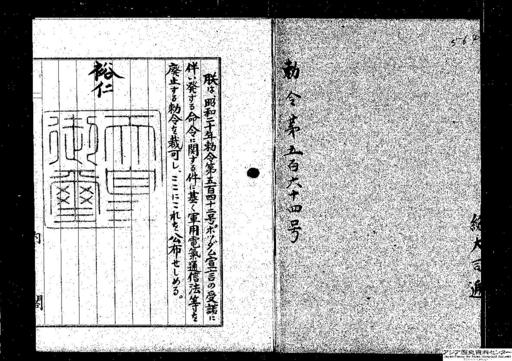 勅令第五百六十四号
朕は、昭和二十年勅令第五百四十二号ポツダム宣言の受諾に
伴い発する命令に関する件に基く軍用電氣通信法等を
廃止する勅令を裁可し、ここにこれを公布せしめる。
裕仁
内
閣
アジア歴史資料センター